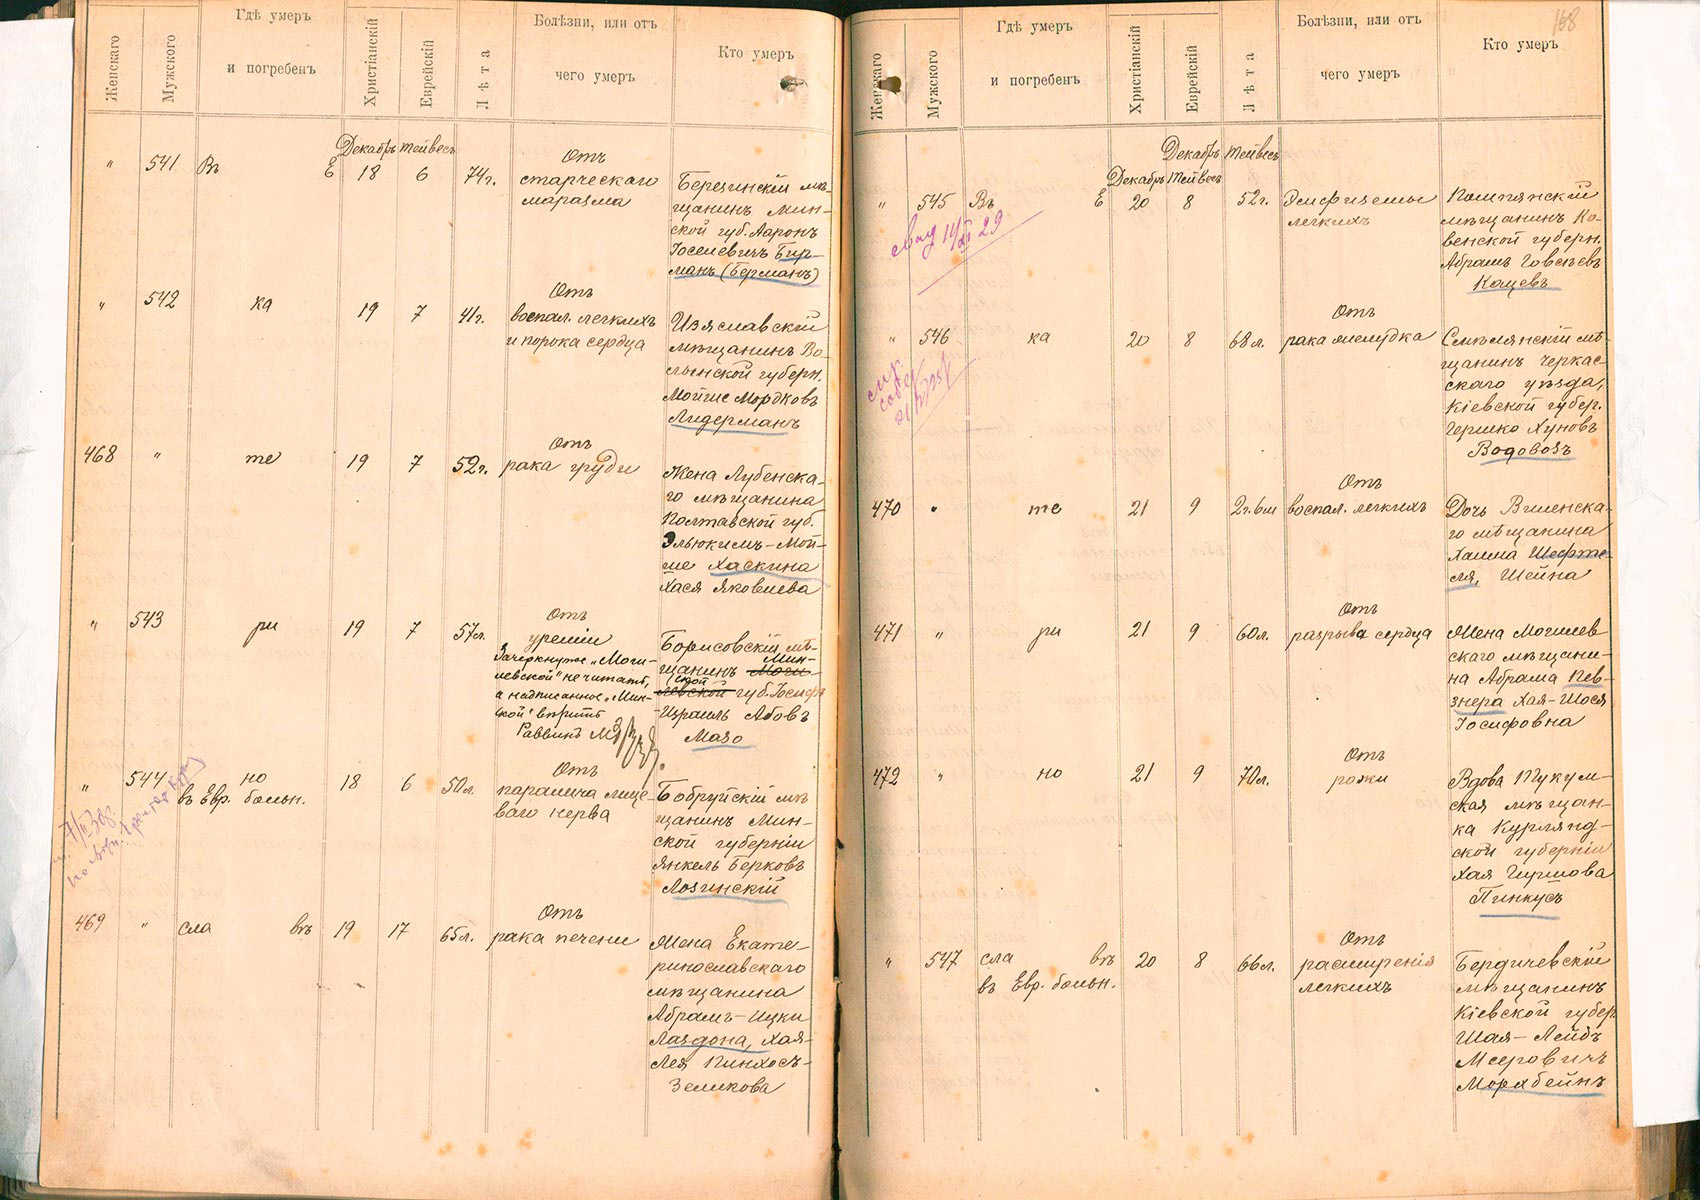 Женскаго
Мужского
Гдѣ умеръ
и погребенъ
Христіанскій
Еврейскій
Лѣта
Болѣзни, или отъ
чего умеръ
Кто умеръ
Декабрь Тейвесъ
" 541 Въ Е 18 6 74г.
Отъ
старческаго
маразма
Березинскій мѣ-
щанинъ Мин-
ской губ. Ааронъ
Іоселевичъ Бир-
манъ (Берманъ)
" 542 ка 19 7 41г.
Отъ
воспал. легкихъ
и порока сердца
Изяславскій
мѣщанинъ Во-
лынской губерн.
Мойше Мордковъ
Лидерманъ
468 " те 19 7 52г.
Отъ
рака груди
Жена Лубенска-
го мѣщанина
Полтавской губ.
Эльюкимъ-Мой-
ше Хаскина
Хася Яковлева
" 543 ри 19 7 57л.
Отъ
уреміи
Зачеркнутое „Моги-
левской" не читать,
а надписанное „Мин-
ской" вѣрить
Раввинъ
Борисовскій мѣ-
щанинъ Моги- Мин-
левской ской губ. Іосифъ
Израиль Абовъ
Мазо
" 544 но 18 6 50л.
въ Евр. больн.
Отъ
паралича лице-
ваго нерва
Бобруйскій мѣ
щанинъ Мин-
ской губерніи
Янкель Берковъ
Лозинскій
469 " сла въ 19 17 65л.
Отъ
рака печени
Жена Екате-
ринославскаго
мѣщанина
Абрамъ-Ицки
Лаздона, Хая-
Лея Пинхосъ-
Зеликова
168
Женскаго
Мужского
Гдѣ умеръ
и погребенъ
Христіанскій
Еврейскій
Лѣта
Болѣзни, или отъ
чего умеръ
Кто умеръ
Декабрь Тейвесъ
Декабрь Тейвесъ
" 545 Въ Е 20 8 52г.
Эмфиземы
легкихъ
мѣщанинъ Ко-
венской губерн.
Абрамъ Говсѣевъ
Кацевъ
" 546 ка 20 8 68л.
Отъ
рака желудка
Смѣлянскій мѣ
щанинъ Черкас-
скаго уѣзда,
Кіевской губер.
Гершко Хуновъ
Водовозъ
470 " те 21 9 2г. 6м
Отъ
воспал. легкихъ
Дочь Виленска-
го мѣщанина
Хаима Шефте-
ля, Шейна
471 " ри 21 9 60л.
Отъ
разрыва сердца
Жена Могилев
скаго мѣщани-
на Абрама Пев-
знера Хая-Шося
Іосифовна
472 " но 21 9 70л.
Отъ
рожи
Вдова Тукум-
ская мѣщан-
ка Курлянд-
ской губерніи
Хая Гиршова
Пинкусъ
" 547 сла въ 20 8 66л.
въ Евр. больн.
Отъ
расширенія
легкихъ
Бердичевскій
мѣщанинъ
Кіевской губер
Шая-Лейбъ
Мееровичъ
Морхбейнъ